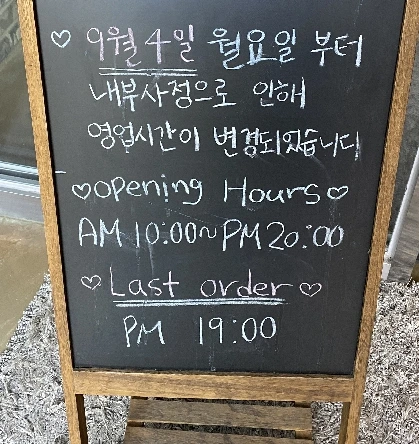 ♡ 9월 4일 월요일 부터
내부사정으로 인해
영업시간이 변경되었습니다
♡opening Hours♡
AM 10:00~PM 20:00
♡ Last order ♡
PM 19:00